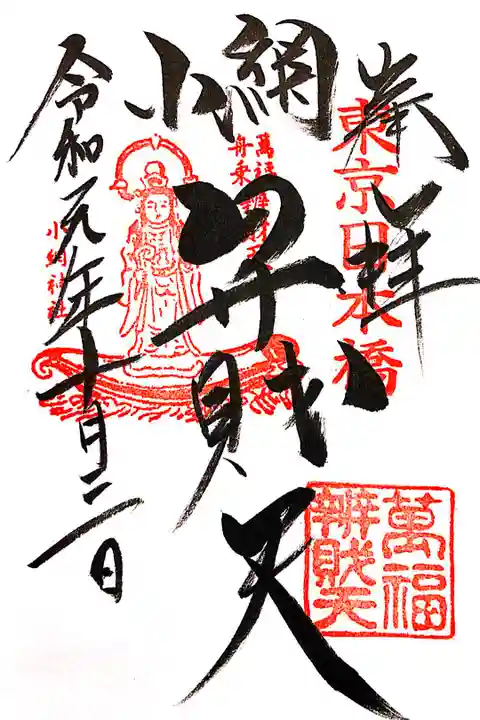 奉拝
東京日本橋
小網
弁財天
萬福
舟乗
小網神社
令和元年十月二日
萬福
辨財天